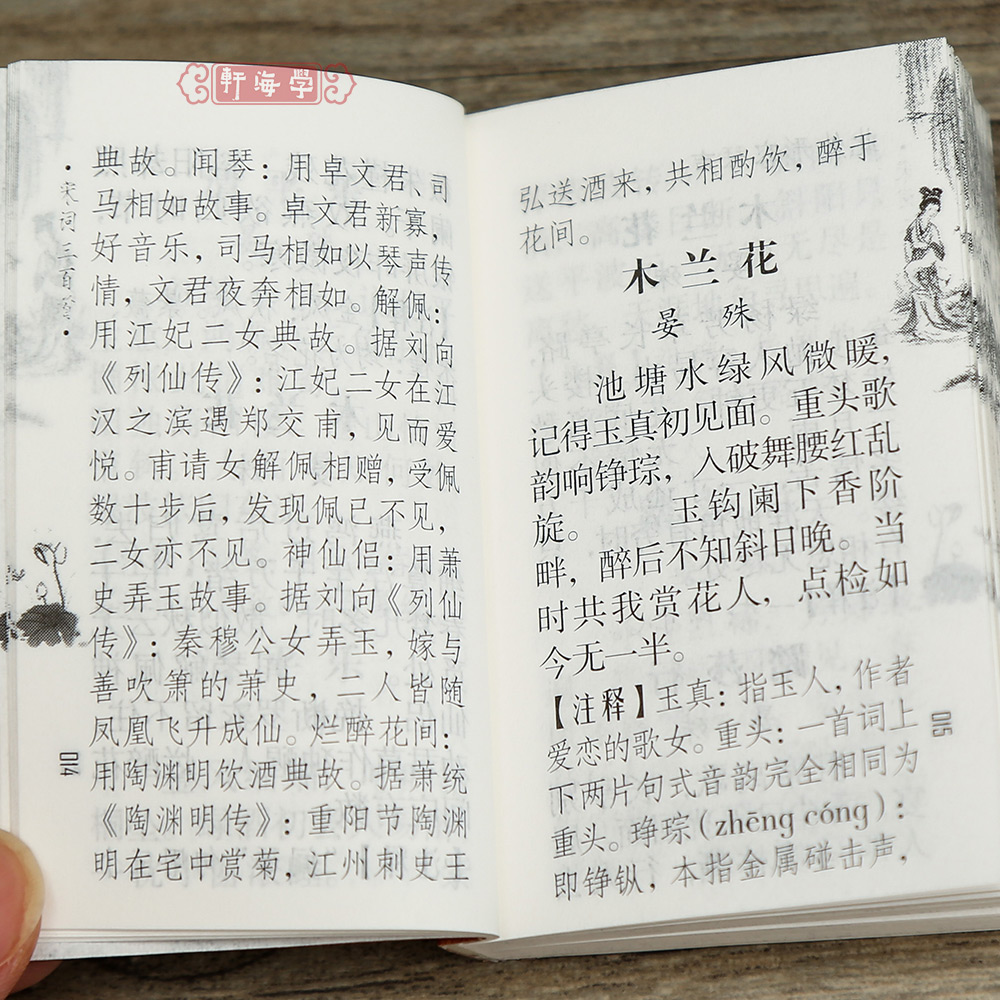 軒海學
·宋词三百首·
典故。闻琴：用卓文君、司
马相如故事。卓文君新寡，
好音乐，司马相如以琴声传
情，文君夜奔相如。解佩：
用江妃二女典故。据刘向
《列仙传》：江妃二女在江
汉之滨遇郑交甫，见而爱
悦。甫请女解佩相赠，受佩
数十步后，发现佩已不见，
二女亦不见。神仙侣：用萧
史弄玉故事。据刘向《列仙
传》：秦穆公女弄玉，嫁与
善吹箫的萧史，二人皆随
凤凰飞升成仙。烂醉花间：
用陶渊明饮酒典故。据萧统
《陶渊明传》：重阳节陶渊
明在宅中赏菊，江州刺史王
014
弘送酒来，共相酌饮，醉于
花间。
木兰花
晏 殊
池塘水绿风微暖，
记得玉真初见面。重头歌
韵响铮琮，入破舞腰红乱
旋。 玉钩阑下香阶
畔，醉后不知斜日晚。当
时共我赏花人，点检如
今无一半。
【注释】玉真：指玉人，作者
爱恋的歌女。重头：一首词上
下两片句式音韵完全相同为
重头。琤琮（zhēng cóng）：
即铮纵，本指金属碰击声，
015